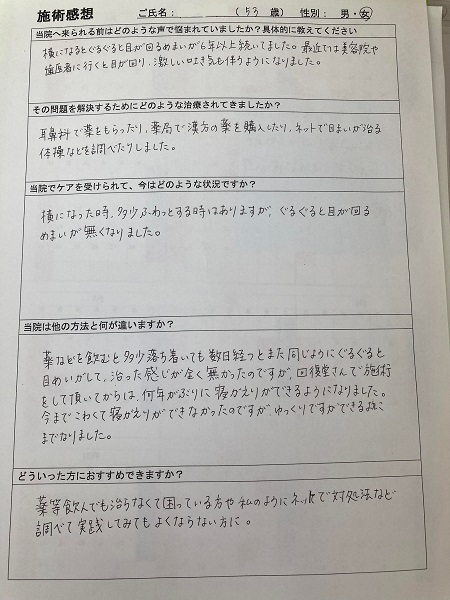 施術感想 ご氏名： （ 53 歳） 性別： 男・女
当院へ来られる前はどのような声で悩まれていましたか？具体的に教えてください
横になるとぐるぐると目が回るめまいが6年以上続いてました。最近では美容院や
歯医者に行くと目が回り、激しい吐き気も伴うようになりました。
その問題を解決するためにどのような治療されてきましたか？
耳鼻科で薬をもらったり、薬局で漢方の薬を購入したり、ネットで目まいが治る
体操などを調べたりしました。
当院でケアを受けられて、今はどのような状況ですか？
横になった時、多少ふわっとする時はありますが、ぐるぐると目が回る
めまいが無くなりました。
当院は他の方法と何が違いますか？
薬などを飲むと多少落ち着いても数日経つとまた同じようにぐるぐると
目めいがして、治った感じが全く無かったのですが、回復堂さんで施術
をして頂いてからは、何年かぶりに寝がえりができるようになりました。
今までこわくて寝がえりができなかったのですが、ゆっくりですができる迄に
までなりました。
どういった方におすすめできますか？
薬等飲んでも治らなくて困っている方や私のようにネットで対処法など
調べて実践してみてもよくならない方に。